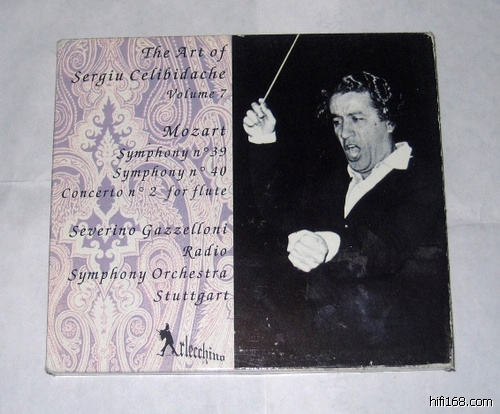 The Art of
Sergiu Celibidache
Volume 7
Mozart
Symphony n° 39
Symphony n° 40
Concerto n° 2 for flute
Severino Gazzelloni
Radio
Symphony Orchestra
Stuttgart
Arlecchino
hifi168.com